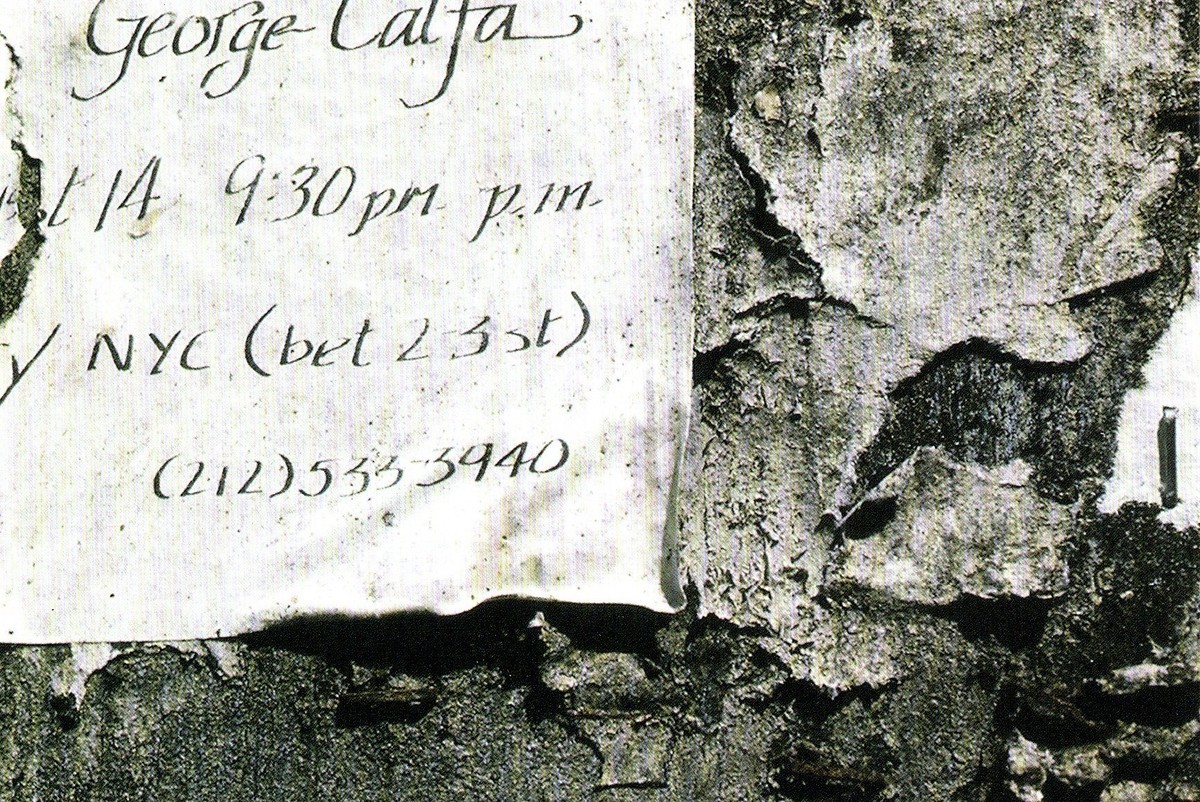 George Calfa
st 14 9:30 pm p.m.
y NYC (bet 2-3 st)
(212) 533-3940